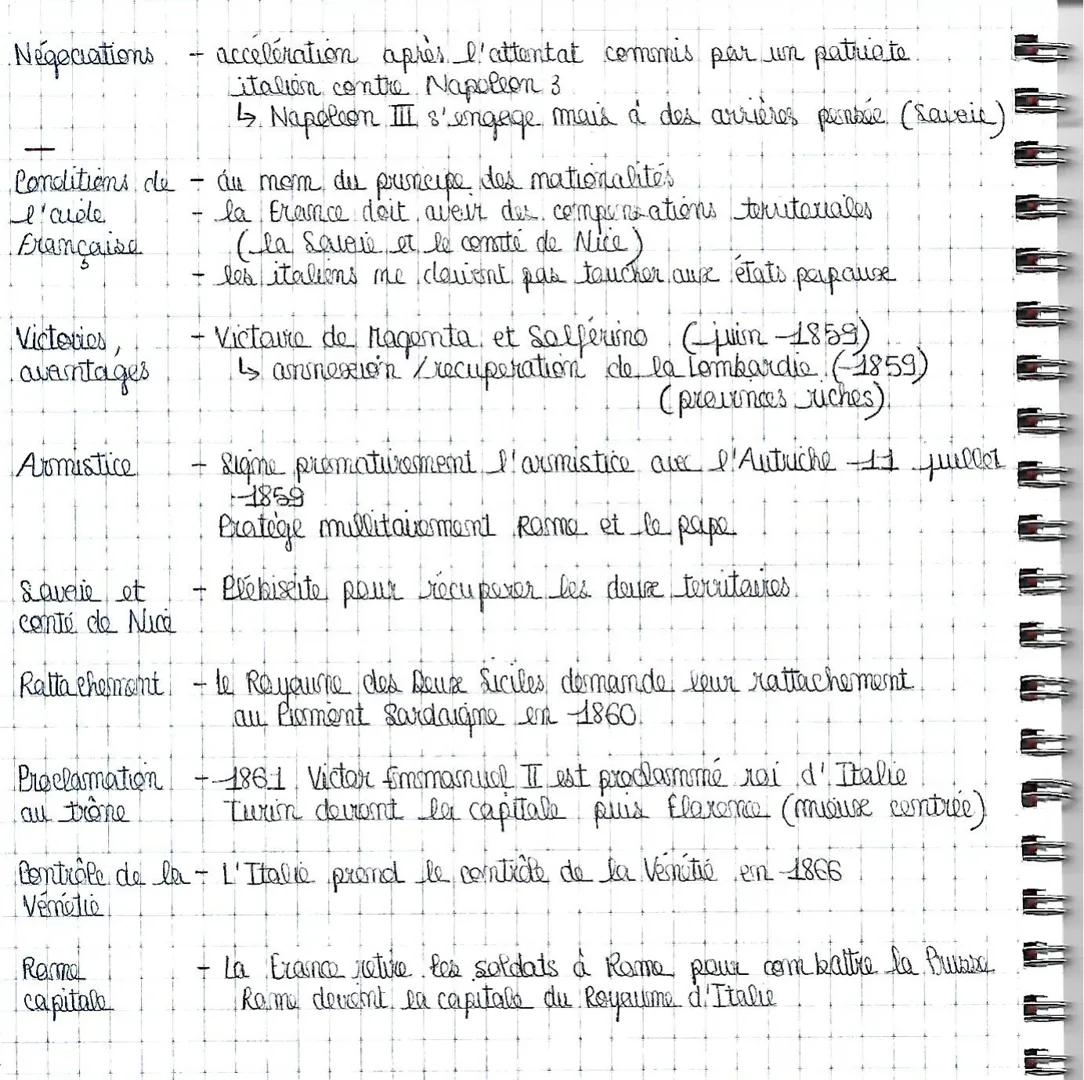 Négociations - accélération après l'attentat commis par un patriote
italien contre Napoléon 3
↳ Napoléon III s'engage mais à des arrières pensée (Savoie)
Conditions de - au nom du principe des nationalités
l'aide - la France doit avoir des compensations territoriales
Française (la Savoie et le comté de Nice)
- les italiens ne doivent pas toucher aux états papaux
Victoires, - Victoire de Magenta et Solférino (juin 1859)
avantages ↳ annexion / recuperation de la Lombardie (1859)
(provinces riches)
Armistice - Signe prematurement l'armistice avec l'Autriche 11 juillet
1859
Protège millitairement Rome et le pape
Savoie et - Plébiscite pour récuperer les deux territoires
conté de Nice
Rattachement - le Royaume des Deux Siciles demande leur rattachement
au Piément Sardaigne en 1860
Proclamation - 1861 Victor Emmanuel II est proclammé roi d'Italie
au trône Turin devient la capitale puis Florence (mieux centrée)
Contrôle de la - L'Italie prend le contrôle de la Vénétie en 1866
Vénétie
Rome - La France retire les soldats à Rome pour combattre la Prusse
capitale Rome devient la capitale du Royaume d'Italie